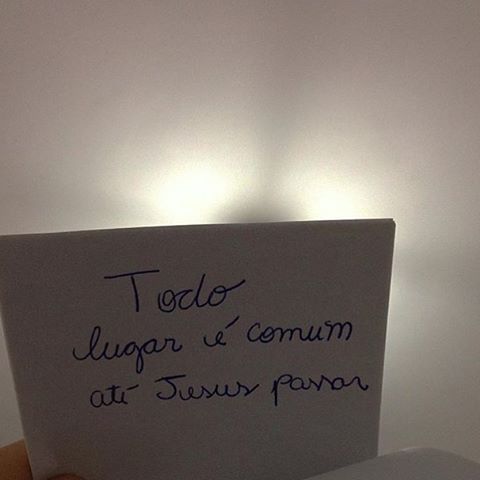 Todo
lugar é comum
até Jesus passar